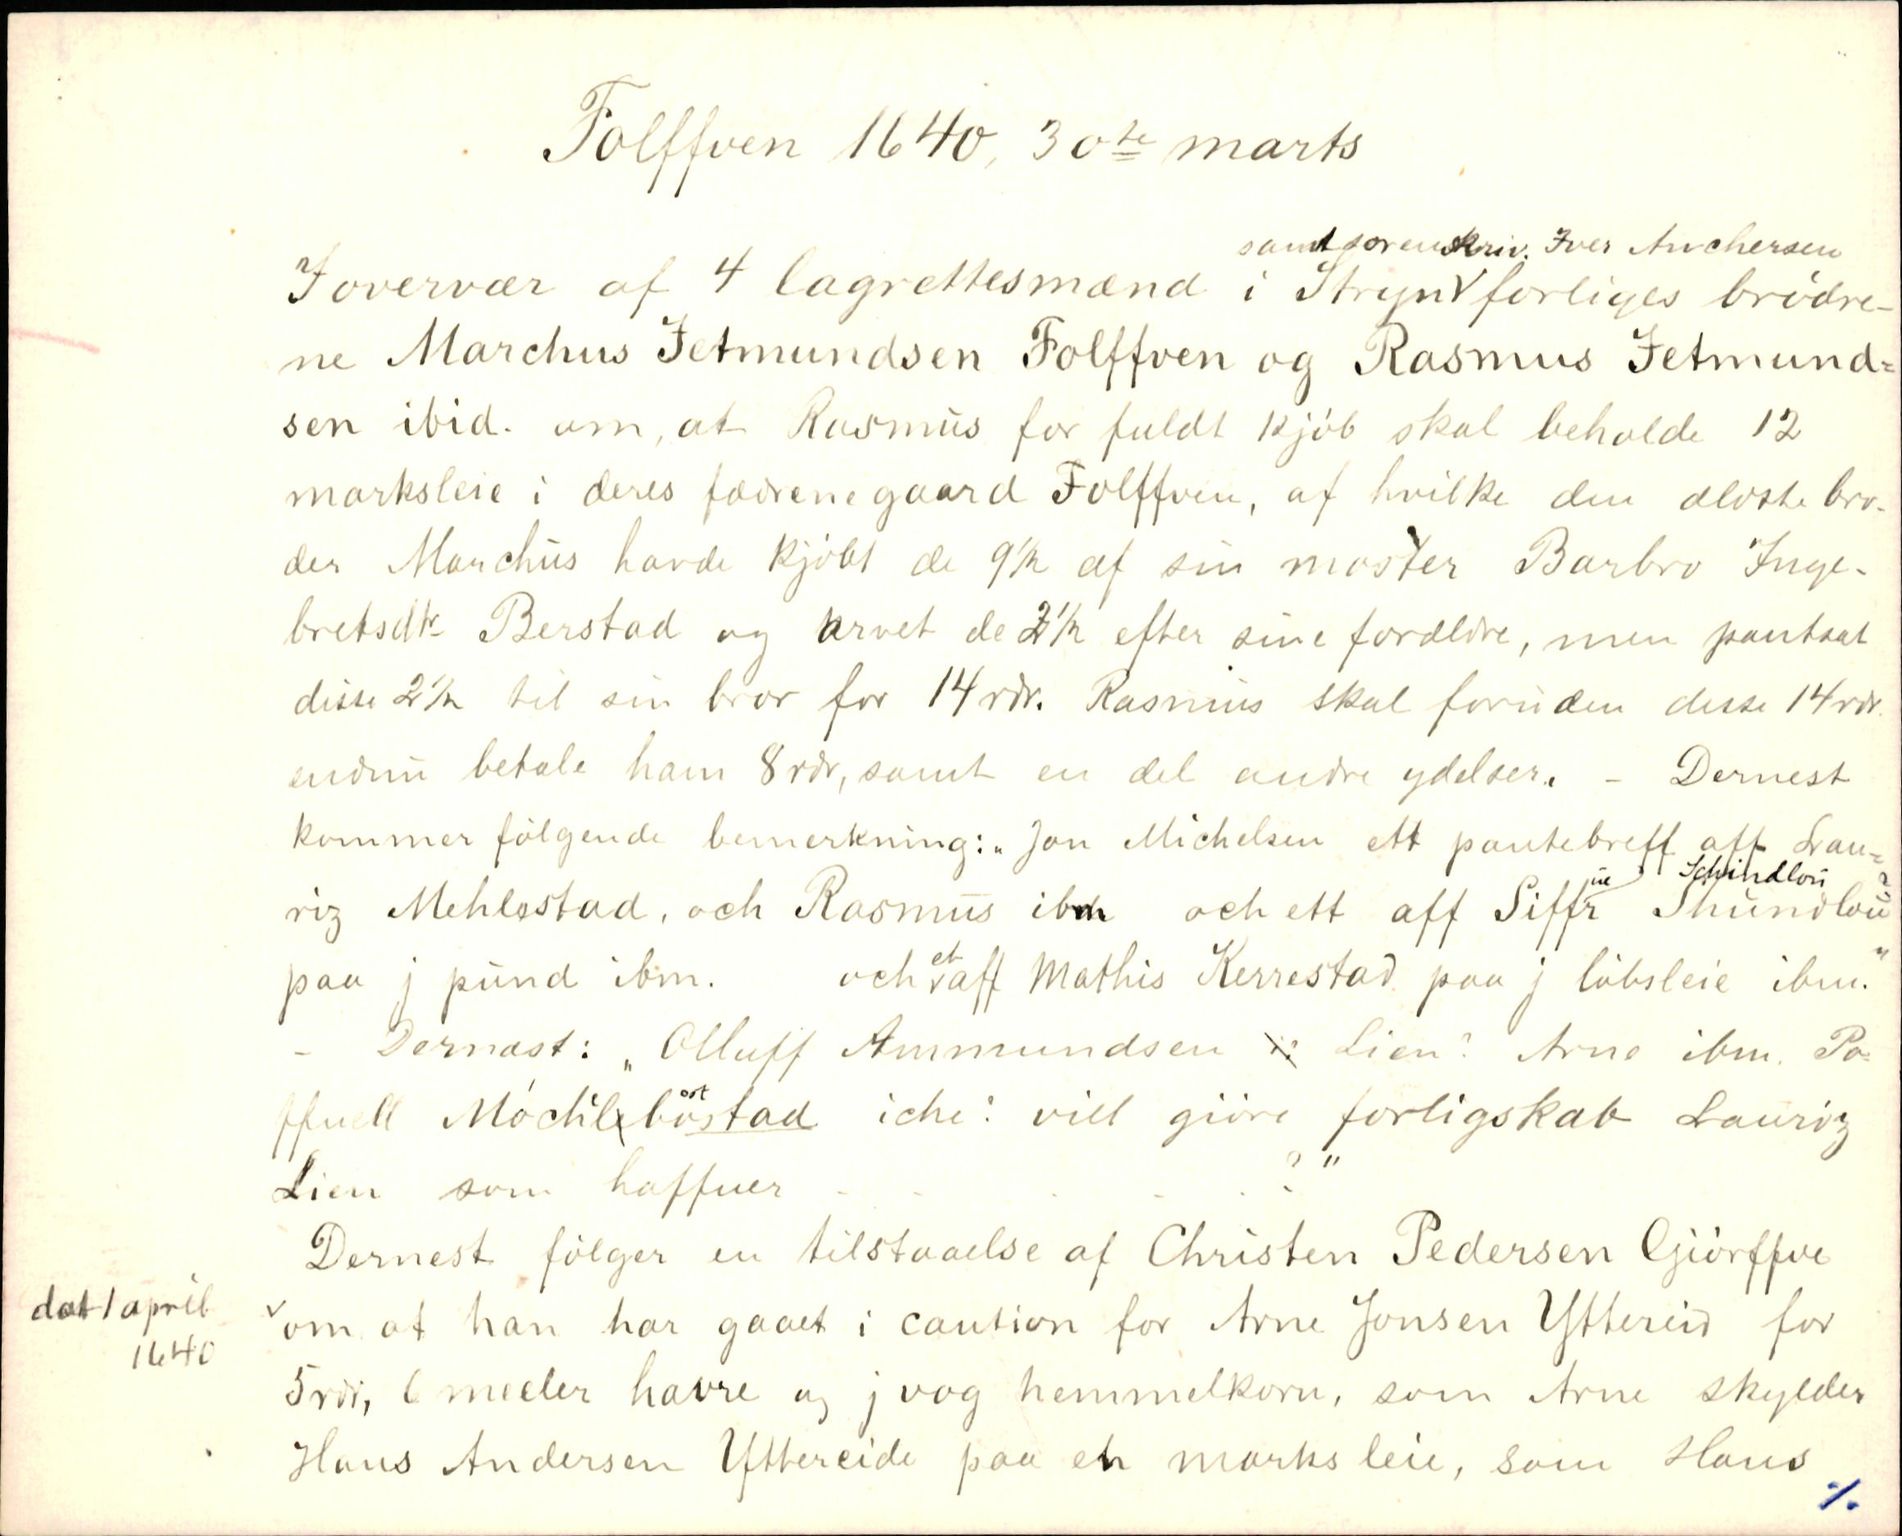 Folffven 1640, 30te marts
samt sorenskriv. Iver Anchersen
I overvær af 4 lagrettesmænd i Stryn v forliges brødre-
ne Marchus Jetmundsen Folffven og Rasmus Jetmund=
sen ibid. om, at Rasmus for fuldt kjøb skal beholde 12
marksleie i deres fædrenegaard Folffven, af hvilke den ældste bro-
der Marchus havde kjøbt de 9½ af sin moster Barbro Inge-
bretsdtr Berstad og arvet de 2½ efter sine forældre, men pantsat
disse 2½ til sin bror for 14 rdr. Rasmus skal foruden disse 14 rdr.
endnu betale ham 8 rdr, samt en del andre ydelser. - Dernest
kommer følgende bemerkning: „Jon Michelsen ett pantebreff aff Lau=
riz Mehlestad, och Rasmus ibm och ett aff Siffr ue Schindlou Shundlou?
paa j pund ibm. och v et aff Mathis Kerrestad paa j løbsleie ibm."
- Dernæst: „Olluff Ammundsen Lien? Arne ibm. Po=
ffuell Møchlebøstad øst iche? vill giøre forligskab Lauriz
Lien som haffuer . . . . . ?"
Dernest følger en tilstaaelse af Christen Pedersen Giørffve
dat 1 april
1640
v om at han har gaaet i caution for Arne Jonsen Yttereid for
5 rdr, 6 meeler havre og j vog hemmelkorn, som Arne skylder
Hans Andersen Yttereide paa en marksleie, som Hans
./.